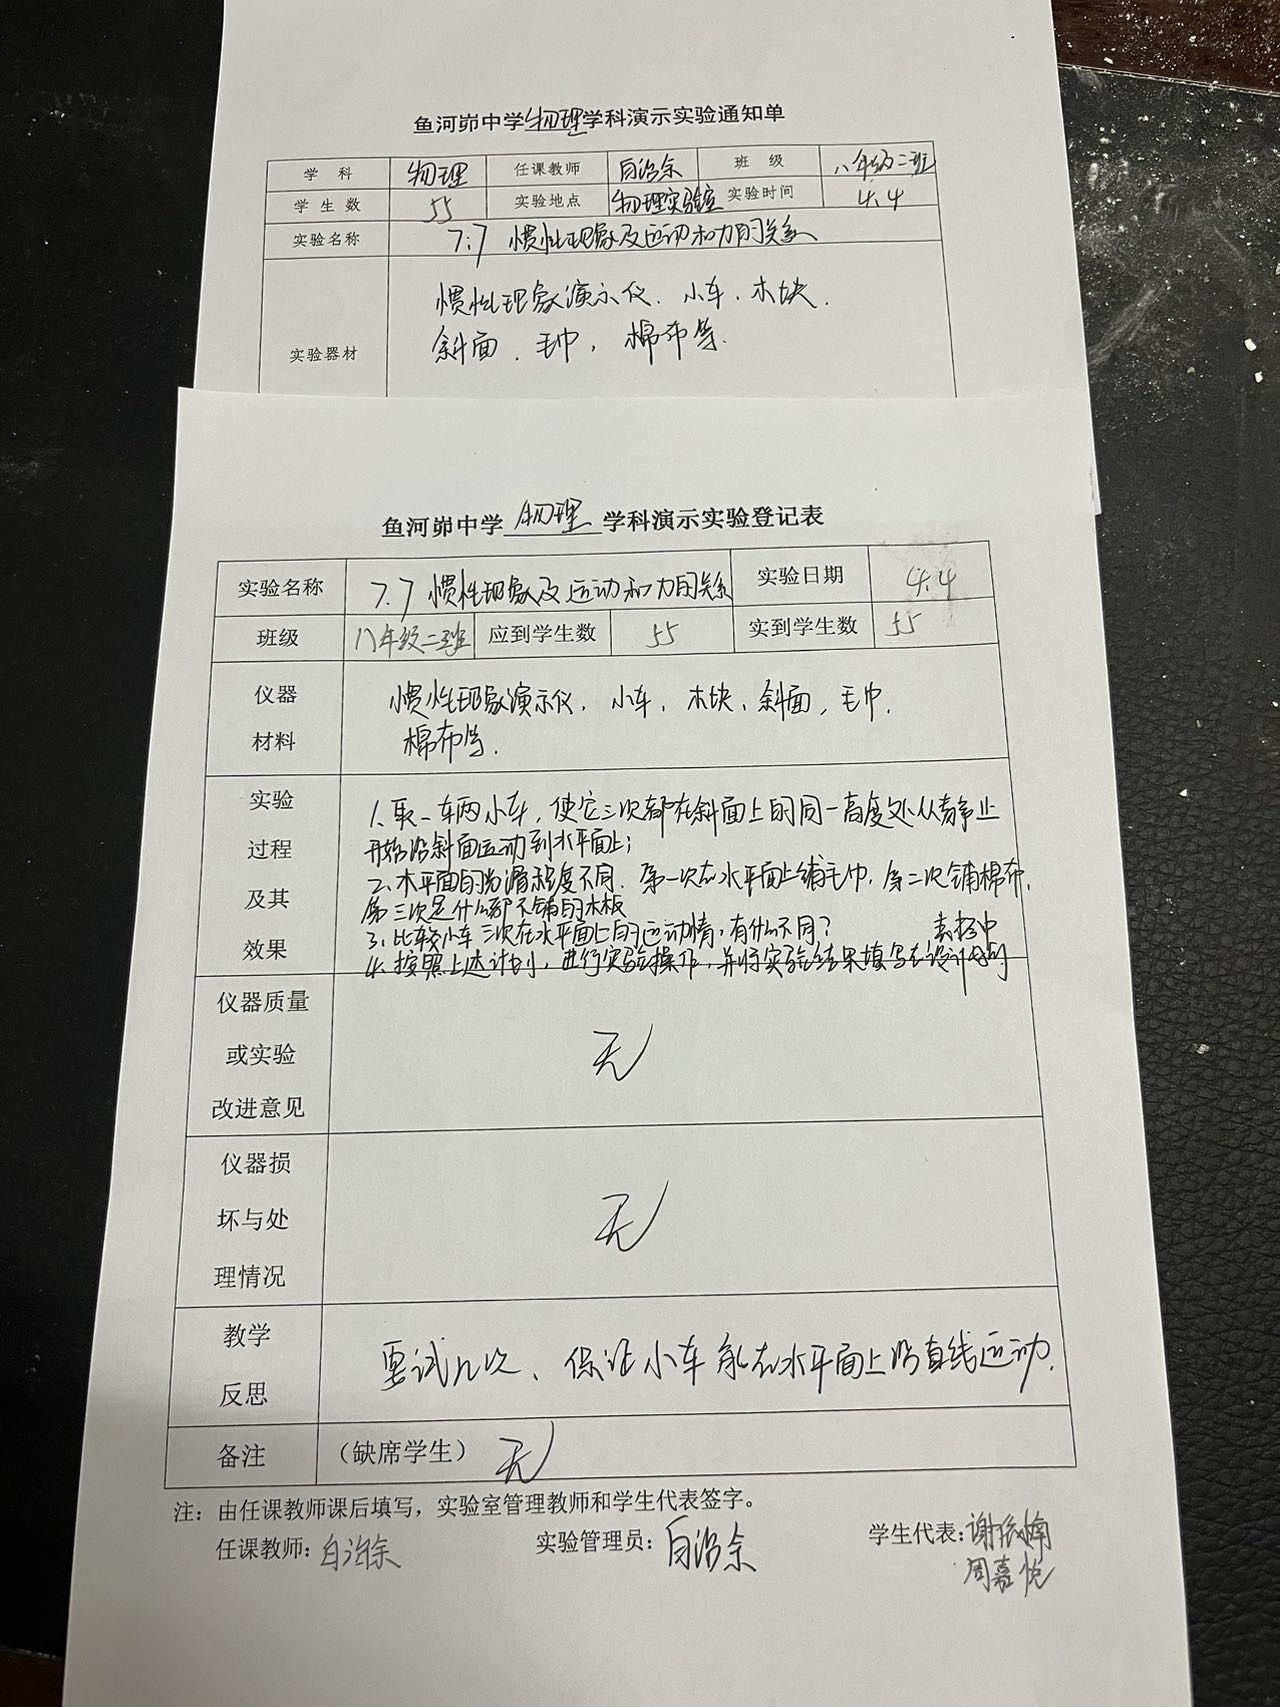 鱼河峁中学物理学科演示实验通知单
学 科 物理 任课教师 白治余 班 级 八年级二班
学 生 数 55 实验地点 物理实验室 实验时间 4.4
实验名称 7.7 惯性现象及运动和力的关系
惯性现象演示仪、小车、木块、
实验器材 斜面、毛巾、棉布等.
鱼河峁中学 物理 学科演示实验登记表
实验名称 7.7 惯性现象及运动和力的关系 实验日期 4.4
班级 八年级二班 应到学生数 55 实到学生数 55
仪器 惯性现象演示仪、小车、木块、斜面、毛巾、
材料 棉布等.
实验
过程
及其
效果
1、取一车两小车,使它三次都在斜面上的同一高度处从静止
开始沿斜面运动到水平面上;
2、水平面的光滑程度不同.第一次在水平面上铺毛巾,第二次铺棉布,
第三次是什么都不铺的木板
3、比较小车三次在水平面上的运动情,有什么不同?
4、按照上述计划,进行实验操作,并将实验结果填写在设计的
表格中
仪器质量
或实验 无
改进意见
仪器损
坏与处 无
理情况
教学
反思
要试几次、保证小车能在水平面上沿直线运动.
备注 （缺席学生） 无
注：由任课教师课后填写，实验室管理教师和学生代表签字。
任课教师: 白治余 实验管理员: 白治余 学生代表: 谢
周嘉悦